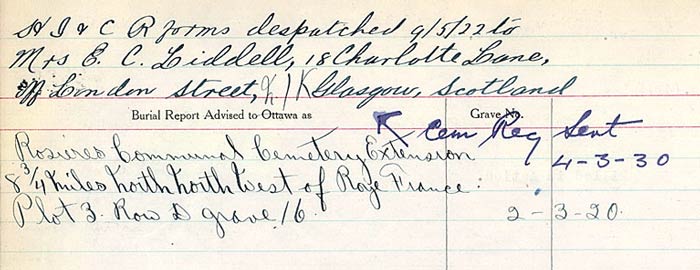 H I & C R forms despatched 9/5/22 to
Mrs E. C. Liddell, 18 Charlotte Lane,
off London Street, Glasgow, Scotland
Burial Report Advised to Ottawa as
Grave No.
Cem Reg Sent
Rosieres Communal Cemetery Extension
4-3-30
8 3/4 miles North North West of Roye France.
Plot 3. Row D grave 16.
2-3-20.